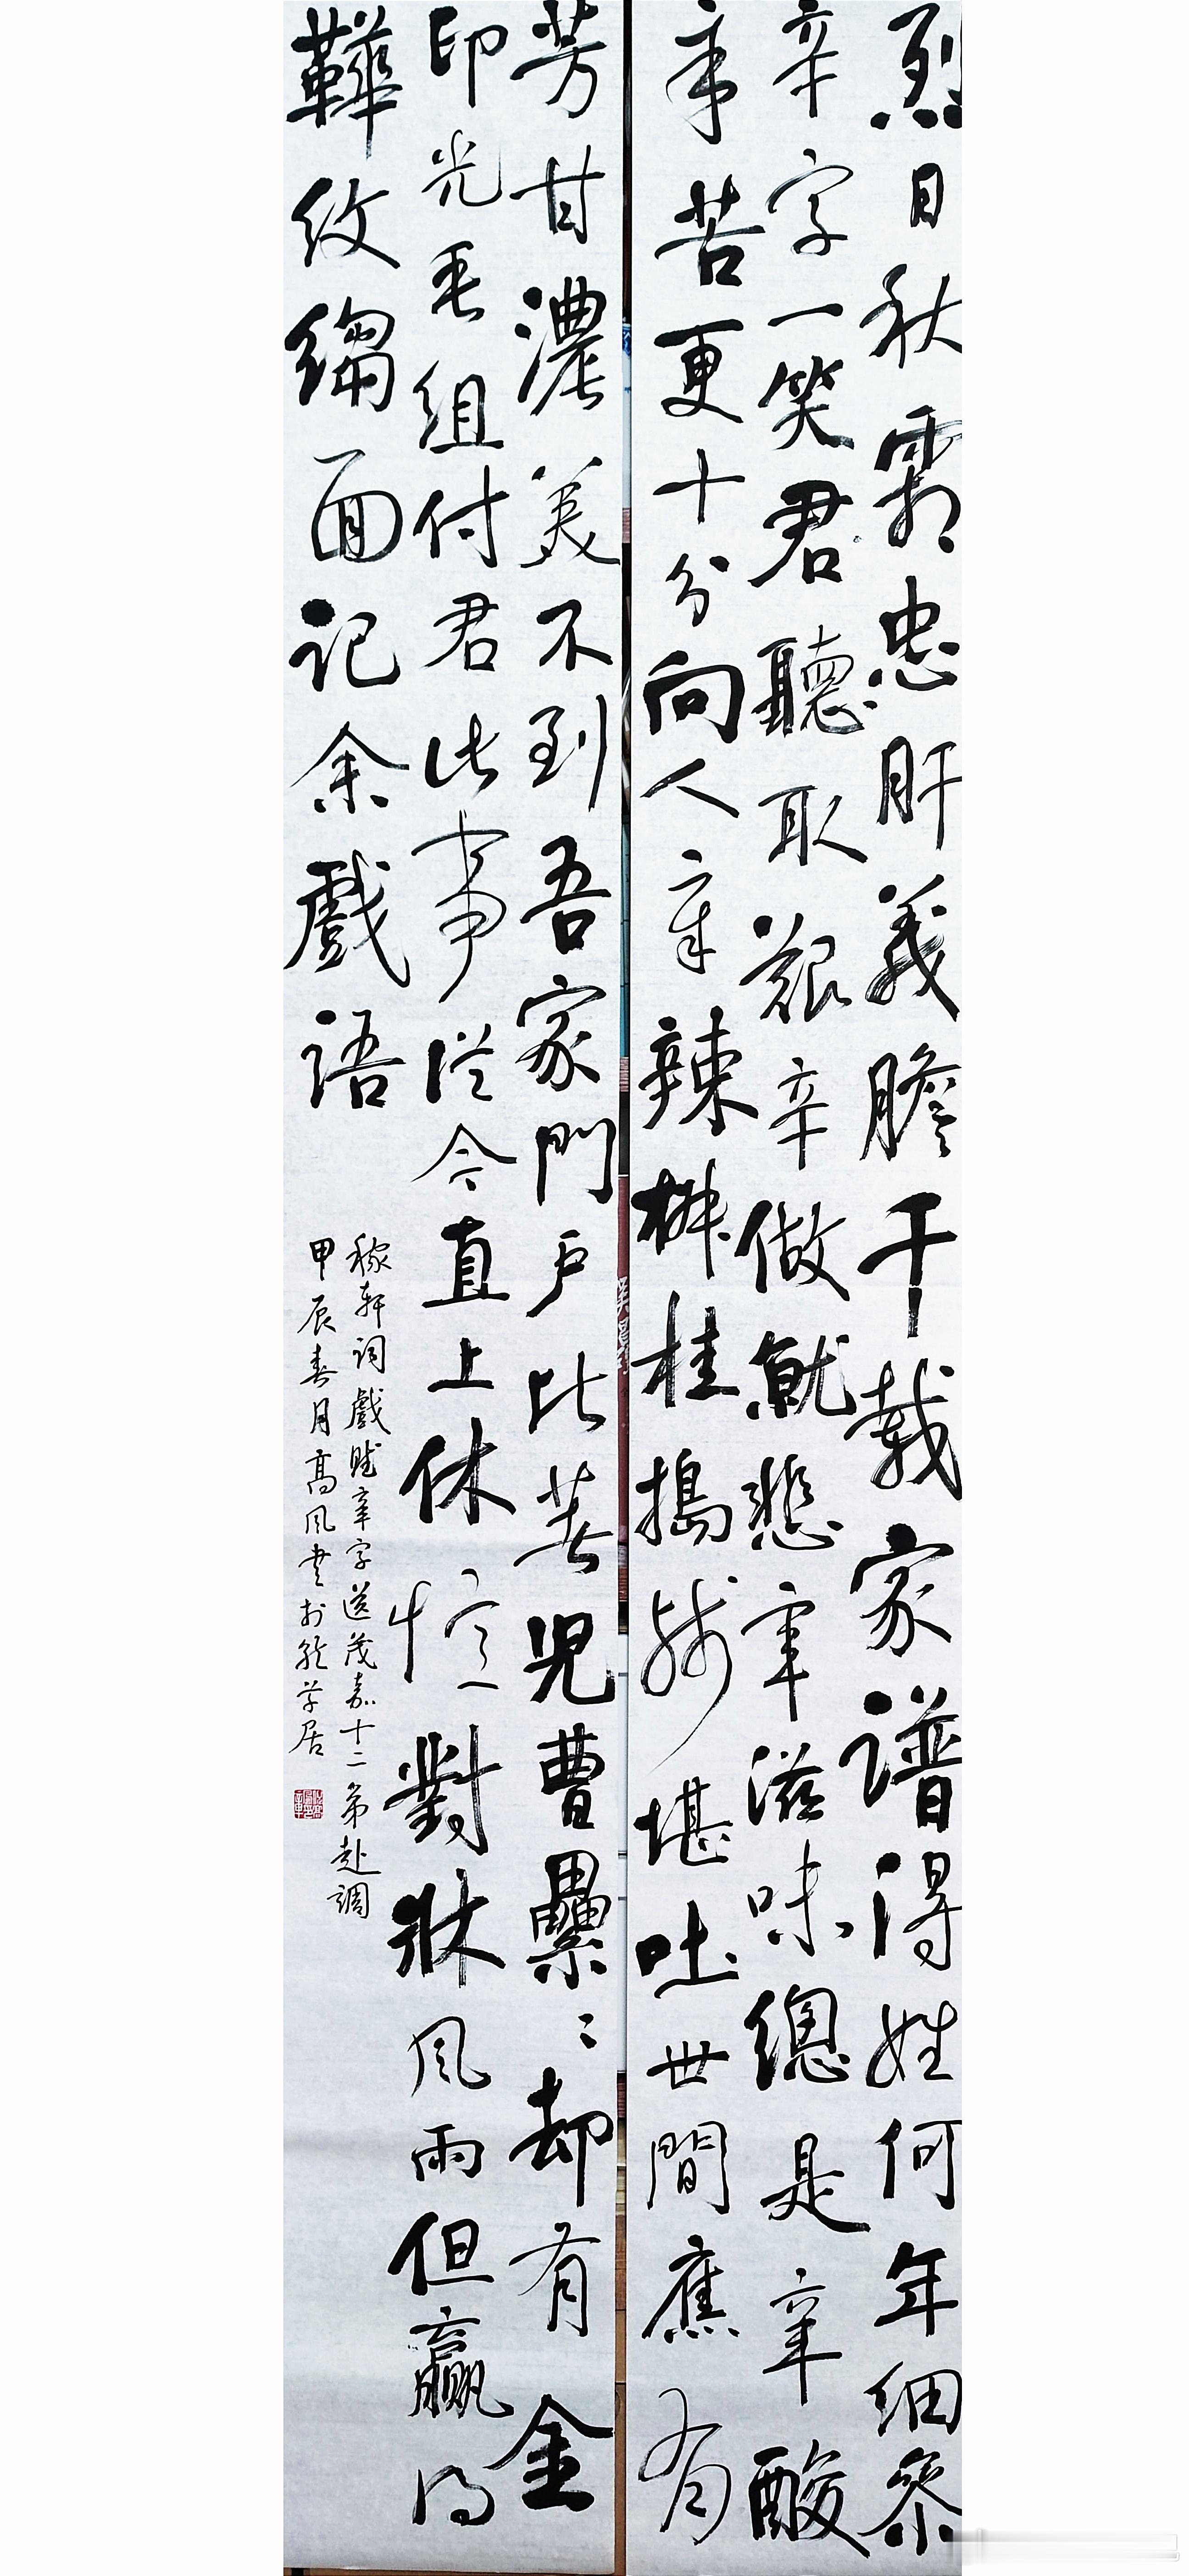 烈日秋霜忠肝義膽千載家譜得姓何年細參
辛字一笑君聽取艱辛做就悲辛滋味總是辛酸
辛苦更十分向人辛辣椒桂搗殘堪吐世間應有
芳甘濃美不到吾家門户比着兒曹纍〻却有金
印光垂組付君此事從今直上休憶對牀風雨但贏得
鞾紋縐面記余戲語
稼軒詞戲賦辛字送茂嘉十二弟赴調
甲辰春月高风書於居